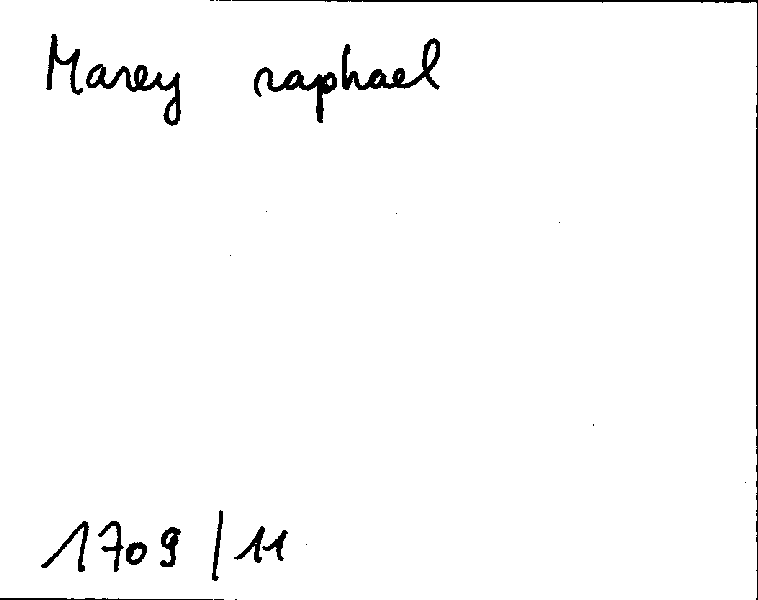 Marey raphael
1709/11